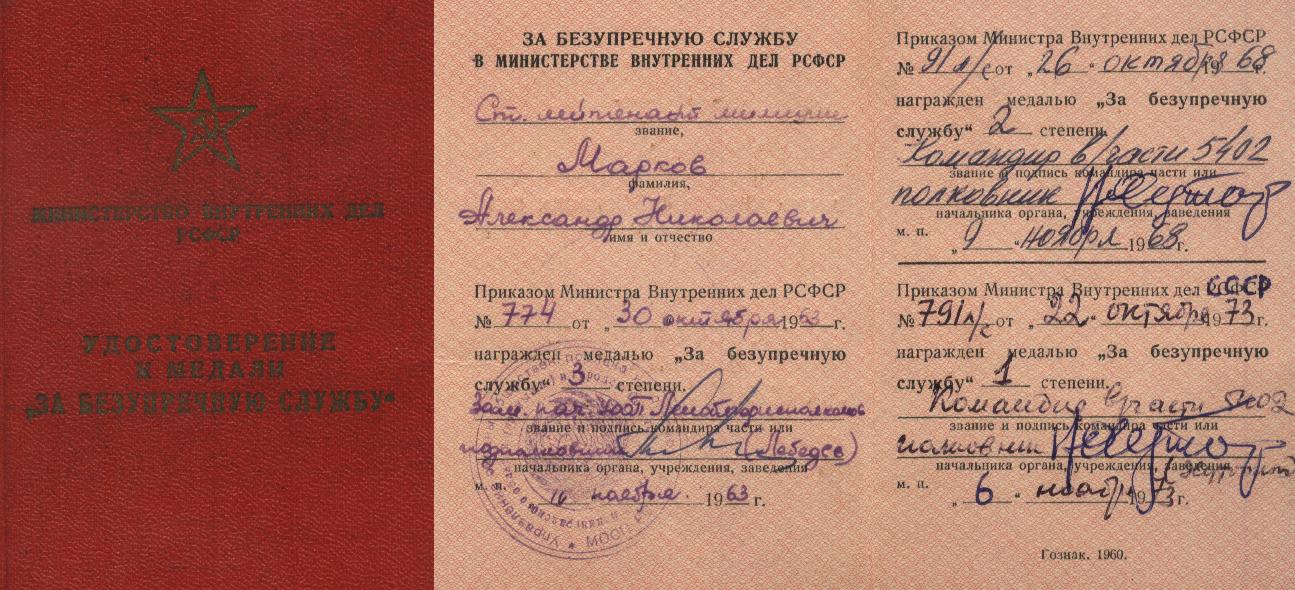 МИНИСТЕРСТВО ВНУТРЕННИХ ДЕЛ
РСФСР
УДОСТОВЕРЕНИЕ
К МЕДАЛИ
„ЗА БЕЗУПРЕЧНУЮ СЛУЖБУ“
ЗА БЕЗУПРЕЧНУЮ СЛУЖБУ
В МИНИСТЕРСТВЕ ВНУТРЕННИХ ДЕЛ РСФСР
Ст. лейтенант милиции
звание,
Марков
фамилия,
Александр Николаевич
имя и отчество
Приказом Министра Внутренних дел РСФСР
№ 774 от „30 октября 1963 г.
награжден медалью „За безупречную
службу“ 3 степени.
Зам. нач.
звание и подпись командира части или
подполковник (Лебедев)
начальника органа, учреждения, заведения
м. п. 10 ноября 1963 г.
Приказом Министра Внутренних дел РСФСР
№ 91 л/с от „26“ октября 1968 г.
награжден медалью „За безупречную
службу“ 2 степени.
Командир в/части 5402
звание и подпись командира части или
полковник
начальника органа, учреждения, заведения
м. п. „9“ ноября 1968 г.
СССР
Приказом Министра Внутренних дел РСФСР
№ 791 л/с от „22“ октября 1973 г.
награжден медалью „За безупречную
службу“ 1 степени.
Командир в/части 5402
звание и подпись командира части или
полковник
начальника органа, учреждения, заведения
м. п. „6“ ноября 1973 г.
Гознак. 1960.